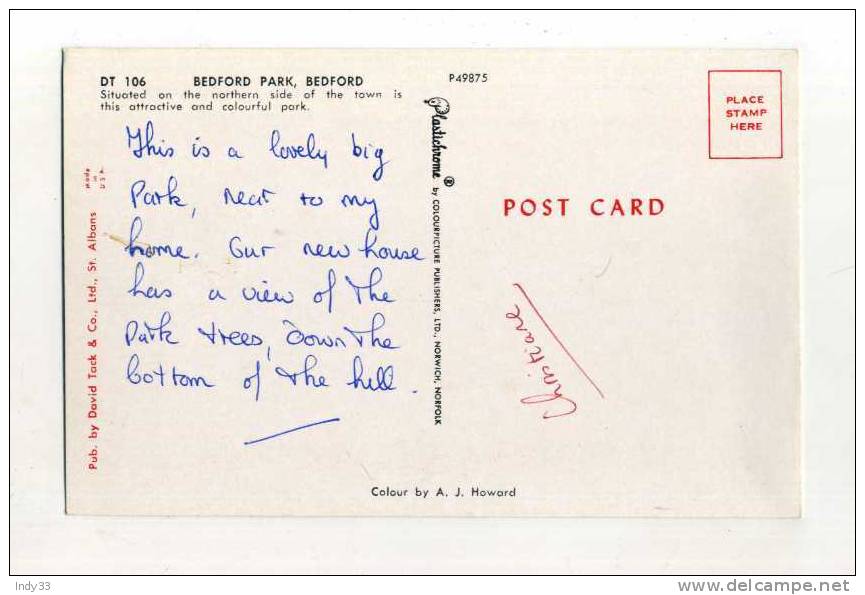 DT 106 BEDFORD PARK, BEDFORD
Situated on the northern side of the town is
this attractive and colourful park.
P49875
PLACE
STAMP
HERE
This is a lovely big
Park, near to my
home. Our new house
has a view of the
Park trees, down the
bottom of the hill.
Made
in
U.S.A.
Pub. by David Tack & Co., Ltd., St. Albans
Plastichrome ® by COLOURPICTURE PUBLISHERS, LTD., NORWICH, NORFOLK
POST CARD
Christiane
Colour by A. J. Howard
Indy33
delcampe.net